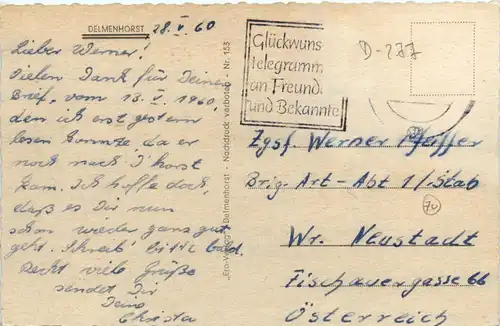 DELMENHORST 28. V. 60
Lieber Werner!
Vielen Dank für Deinen
Brief, vom 13. V. 1960,
den ich erst gestern
lesen konnte, da er
noch nach I'horst
kam. Ich hoffe doch,
daß es Dir nun
schon wieder ganz gut
geht. Schreib' bitte bald.
Recht viele Grüße
sendet Dir
Deine
Christa
"Ero-Verlag" Delmenhorst - Nachdruck verboten - Nr. 153
Glückwuns
telegramm
an Freund
und Bekannte
D-277
Zgsf. Werner Pfeiffer
Brig. Art-Abt 1/Stab
Wr. Neustadt
Fischauergasse 66
Österreich